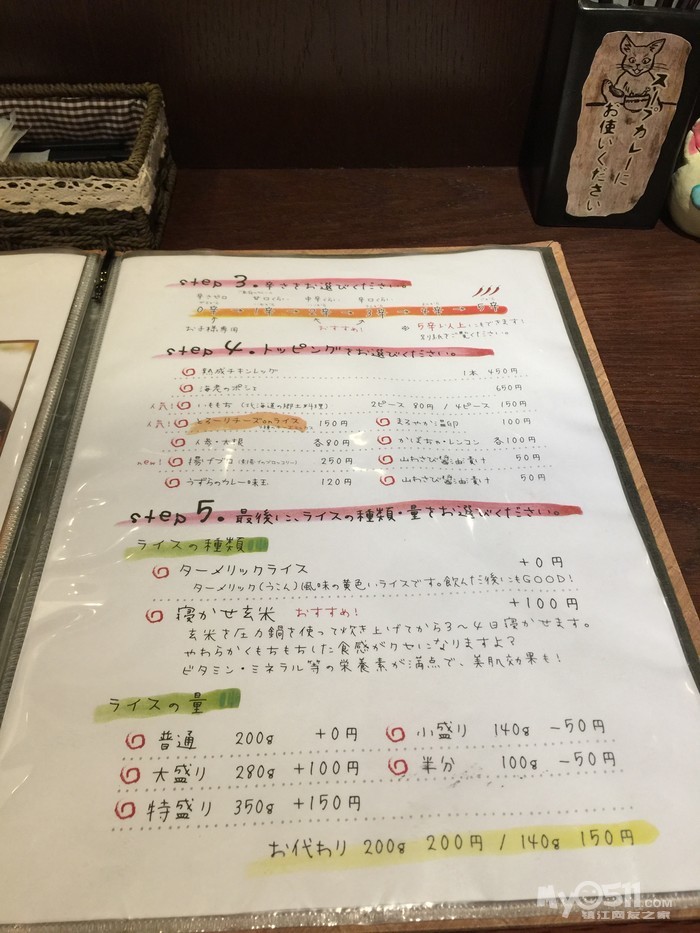 スープカレーに
お使いください
step 3. 辛さをお選びください。
お子様専用
おすすめ!
5辛以上
step 4. トッピングをお選びください。
熟成チキンレッグ 1本 450円
650円
人気! いももち (北海道の郷土料理) 2ピース 80円 / 4ピース 150円
人気! とろ〜りチーズonライス 150円 まろやか温卵 100円
人参・大根 各80円 かぼちゃ・レンコン 各100円
new! 250円 山わさび醤油漬け 50円
うずらのカレー味玉 120円 山わさび醤油漬け 50円
step 5. 最後に、ライスの種類・量をお選びください。
ライスの種類
ターメリックライス +0円
ターメリック(うこん)風味の黄色いライスです。飲んだ後にもGOOD!
寝かせ玄米 おすすめ! +100円
玄米を圧力鍋を使って炊き上げてから3〜4日寝かせます。
やわらかくもちもちした食感がクセになりますよ?
ビタミン・ミネラル等の栄養素が満点で、美肌効果も!
ライスの量
普通 200g +0円 小盛り 140g -50円
大盛り 280g +100円 半分 100g -50円
特盛り 350g +150円
お代わり 200g 200円 / 140g 150円
My0511.COM
镇江网友之家